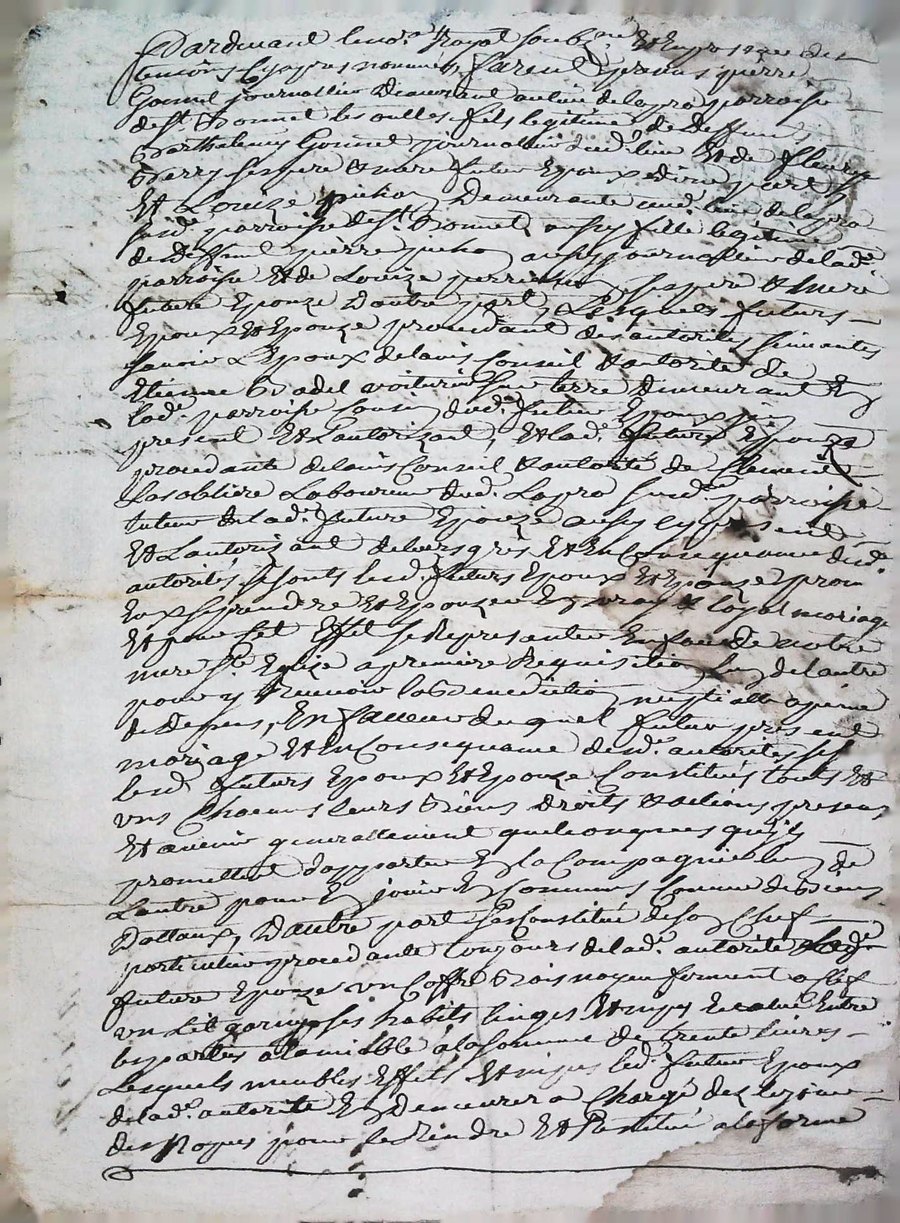 Pardevant le no.re Royal soubz.ne Et En presence des
temoins cy apres nommes, furent presens pierre
Gonnet journallier demeurant au lieu de lapra parroisse
de S.t Bonnet les oulles fils legitime de Deffunt
Barthelemy Gonnet journallier dud. lieu Et de fleurie
Barry ses pere & mere futur Epoux d'une part
Et Louize pichon Demeurante aud. lieu de lapra
susd. parroisse de S.t Bonnet aussy fille legitime
de Deffunt pierre pichon aussy journallier de lad.
parroise Et de Louize perrichon ses pere & mere
future Epouze Dautre part, Lesquels futurs
Epoux Et Epouze procedant des autorités suivantes
Savoir L'Epoux de lavis Conseil & autorité de
Etienne Badel voiturier sur terre demeurant En
lad. parroisse Cousin dud. futur Epoux
present Et Lautorizant, Et lad. future Epouze
procedante de lavis Conseil & autorité de Clement
Lasabliere Laboureur dud. Lapra susd. parroisse
tuteur de lad. future Epouze aussy cy present
Et Lautorisant de leurs grés Et En Consequance desd.
autorités, se sont lesd. futurs Epoux Et Epouze promis
Eux se prendre Et Epouzer En vray & loyal mariage
Et pour cet Effet se Representer En face de notre
mere S.te Eglise a premiere Requisition lun de lautre
pour y Recevoir la Benediction nuptialle a peine
de Depens, En faveur duquel futur present
mariage Et En Consequance desd. autorités se
lesd. futurs Epoux Et Epouze Constitués touts Et
uns Chacuns leurs Biens droits & actions presens
Et avenir generallement quelconques qu'ils
promettent d'apporter En la Compagnie lun de
Lautre pour En jouir En Communs Comme de Biens
Dottaux, Dautre part ses Constitué de son Chef
particulier procedante toujours de lad. autorité Lad.
future Epouze un Coffre Bois noyer fermant a Clef
un Lit garny ses habits linges Et nipes Evalué Entre
les parties a lamiable a la somme de trente livres
Lesquels meubles Effets Et nipes led. futur Epoux
de lad. autorité En Demeurera Chargé des le jour
des Noces pour les Rendre Et Restituer a la forme